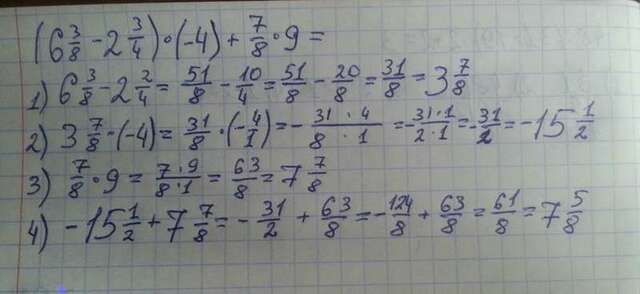 (6 3/8 - 2 3/4) · (-4) + 7/8 · 9 =
1) 6 3/8 - 2 2/4 = 51/8 - 10/4 = 51/8 - 20/8 = 31/8 = 3 7/8
2) 3 7/8 · (-4) = 31/8 · (-4/1) = - 31 · 4/8 · 1 = - 31 · 1/2 · 1 = - 31/2 = -15 1/2
3) 7/8 · 9 = 7 · 9/8 · 1 = 63/8 = 7 7/8
4) -15 1/2 + 7 7/8 = - 31/2 + 63/8 = - 124/8 + 63/8 = 61/8 = 7 5/8